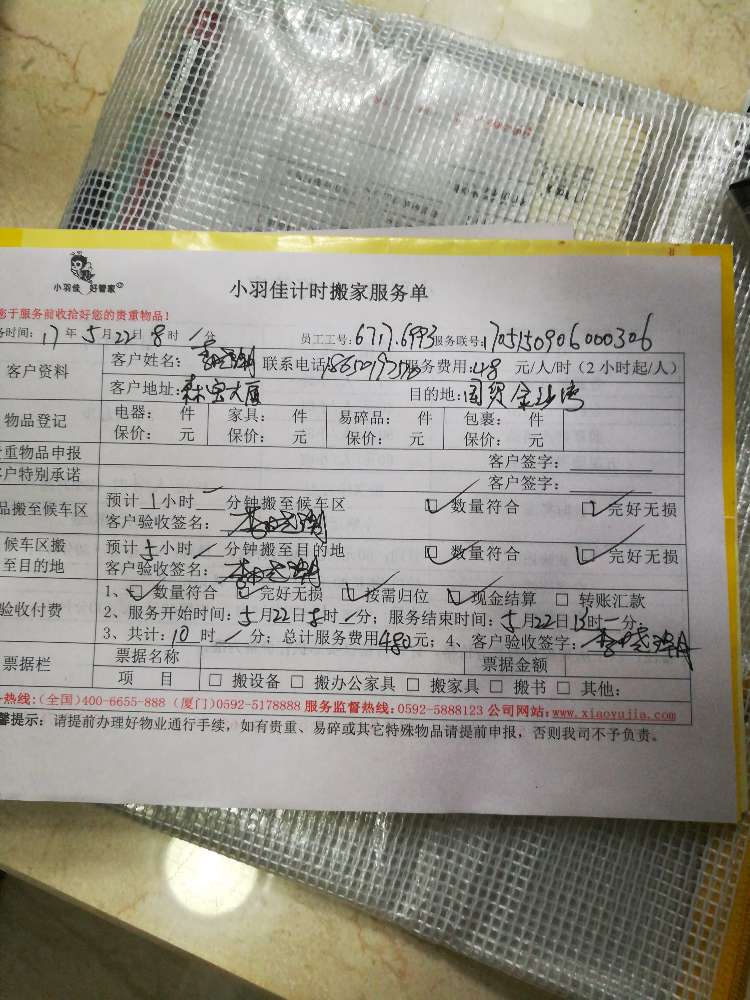 小羽佳 好管家
小羽佳计时搬家服务单
您于服务前收拾好您的贵重物品！
务时间：17年5月22日8时/分 员工工号：6717.6993 服务联号：1705150906000306
客户资料
客户姓名： 联系电话 服务费用：48 元/人/时（2小时起/人）
客户地址：森宝大厦 目的地：国贸金沙湾
物品登记
电器： 件 家具： 件 易碎品： 件 包裹： 件
保价： 元 保价： 元 保价： 元 保价： 元
贵重物品申报 客户签字：
客户特别承诺 客户签字：
品搬至候车区
预计1小时/分钟搬至候车区 数量符合 完好无损
客户验收签名：
候车区搬至目的地
预计5小时/分钟搬至目的地 数量符合 完好无损
客户验收签名：
验收付费
1、数量符合 完好无损 按需归位 现金结算 转账汇款
2、服务开始时间：5月22日8时/分；服务结束时间：5月22日13时一分；
3、共计：10时/分；总计服务费用480元；4、客户验收签字：
票据栏
票据名称 票据金额
项 目 搬设备 搬办公家具 搬家具 搬书 其他：
务热线：（全国）400-6655-888（厦门）0592-5178888 服务监督热线：0592-5888123 公司网站：www.xiaoyujia.com
馨提示：请提前办理好物业通行手续，如有贵重、易碎或其它特殊物品请提前申报，否则我司不予负责。